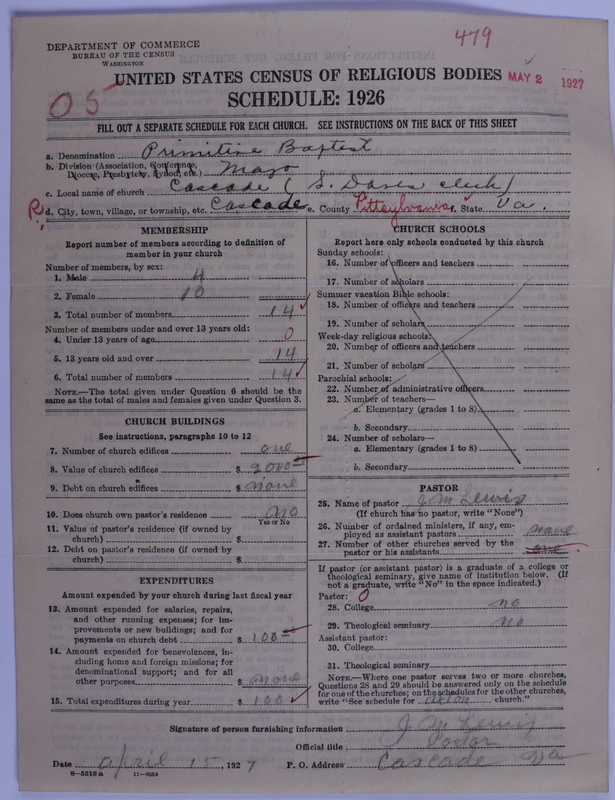 479
DEPARTMENT OF COMMERCE
BUREAU OF THE CENSUS
WASHINGTON
UNITED STATES CENSUS OF RELIGIOUS BODIES MAY 2 1927
05
SCHEDULE: 1926
FILL OUT A SEPARATE SCHEDULE FOR EACH CHURCH. SEE INSTRUCTIONS ON THE BACK OF THIS SHEET
a. Denomination Primitive Baptest
b. Division (Association, Conference, Diocese, Presbytery, Synod, etc.) Mayo
c. Local name of church Cascade (
R d. City, town, village, or township, etc. Cascade e. County Pittsylvania f. State Va.
MEMBERSHIP
Report number of members according to definition of
member in your church
Number of members, by sex:
1. Male 4
2. Female 10
3. Total number of members 14
Number of members under and over 13 years old:
4. Under 13 years of age 0
5. 13 years old and over 14
6. Total number of members 14
NOTE.—The total given under Question 6 should be the
same as the total of males and females given under Question 3.
CHURCH BUILDINGS
See instructions, paragraphs 10 to 12
7. Number of church edifices one
8. Value of church edifices $ 2000
9. Debt on church edifices $ none
10. Does church own pastor's residence No
Yes or No
11. Value of pastor's residence (if owned by
church) $
12. Debt on pastor's residence (if owned by
church) $
EXPENDITURES
Amount expended by your church during last fiscal year
13. Amount expended for salaries, repairs,
and other running expenses; for im-
provements or new buildings; and for
payments on church debt $ 100
14. Amount expended for benevolences, in-
cluding home and foreign missions; for
denominational support; and for all
other purposes $ none
15. Total expenditures during year $ 100
CHURCH SCHOOLS
Report here only schools conducted by this church
Sunday schools:
16. Number of officers and teachers
17. Number of scholars
Summer vacation Bible schools:
18. Number of officers and teachers
19. Number of scholars
Week-day religious schools:
20. Number of officers and teachers
21. Number of scholars
Parochial schools:
22. Number of administrative officers
23. Number of teachers—
a. Elementary (grades 1 to 8)
b. Secondary
24. Number of scholars—
a. Elementary (grades 1 to 8)
b. Secondary
PASTOR
25. Name of pastor J. M Lewis
(If church has no pastor, write "None")
26. Number of ordained ministers, if any, em-
ployed as assistant pastors none
27. Number of other churches served by the
pastor or his assistants
If pastor (or assistant pastor) is a graduate of a college or
theological seminary, give name of institution below. (If
not a graduate, write "No" in the space indicated.)
Pastor: 0
28. College no
29. Theological seminary No
Assistant pastor:
30. College
31. Theological seminary
NOTE.—Where one pastor serves two or more churches,
Questions 28 and 29 should be answered only on the schedule
for one of the churches; on the schedules for the other churches,
write "See schedule for church."
Signature of person furnishing information J. M Lewis
Official title Pastor
Date april 15, 1927 P. O. Address Cascade Va
8-5518 a 11-9064